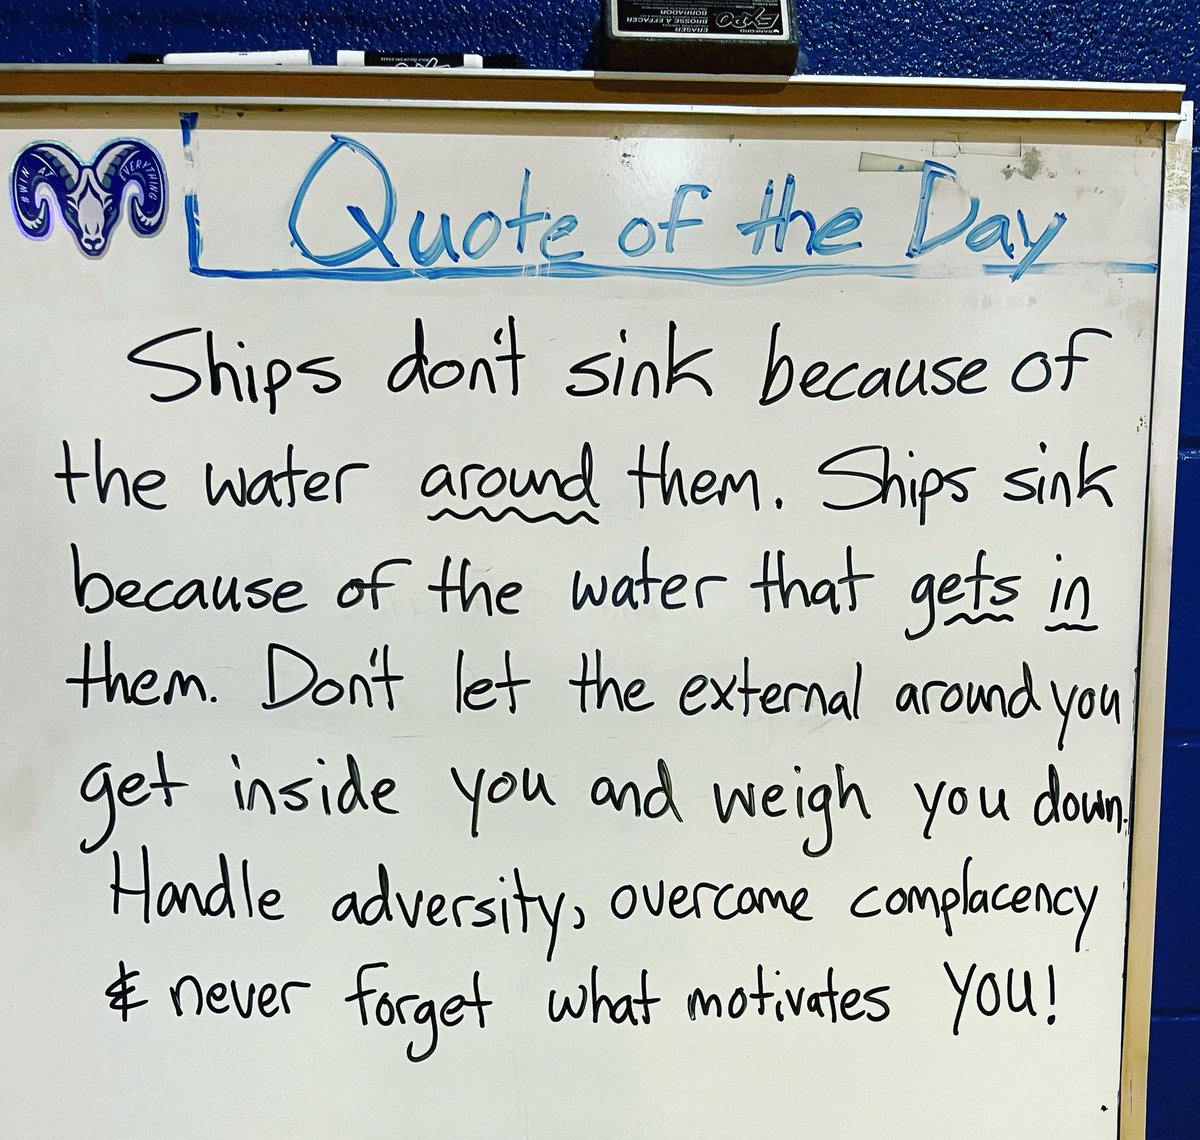 SANFORD
EXPO
ERASER
BROSSE À EFFACER
BORRADOR
#WIN AT EVERYTHING
Quote of the Day
Ships don't sink because of
the water around them. Ships sink
because of the water that gets in
them. Don't let the external around you
get inside you and weigh you down.
Handle adversity, overcome complacency
& never forget what motivates YOU!